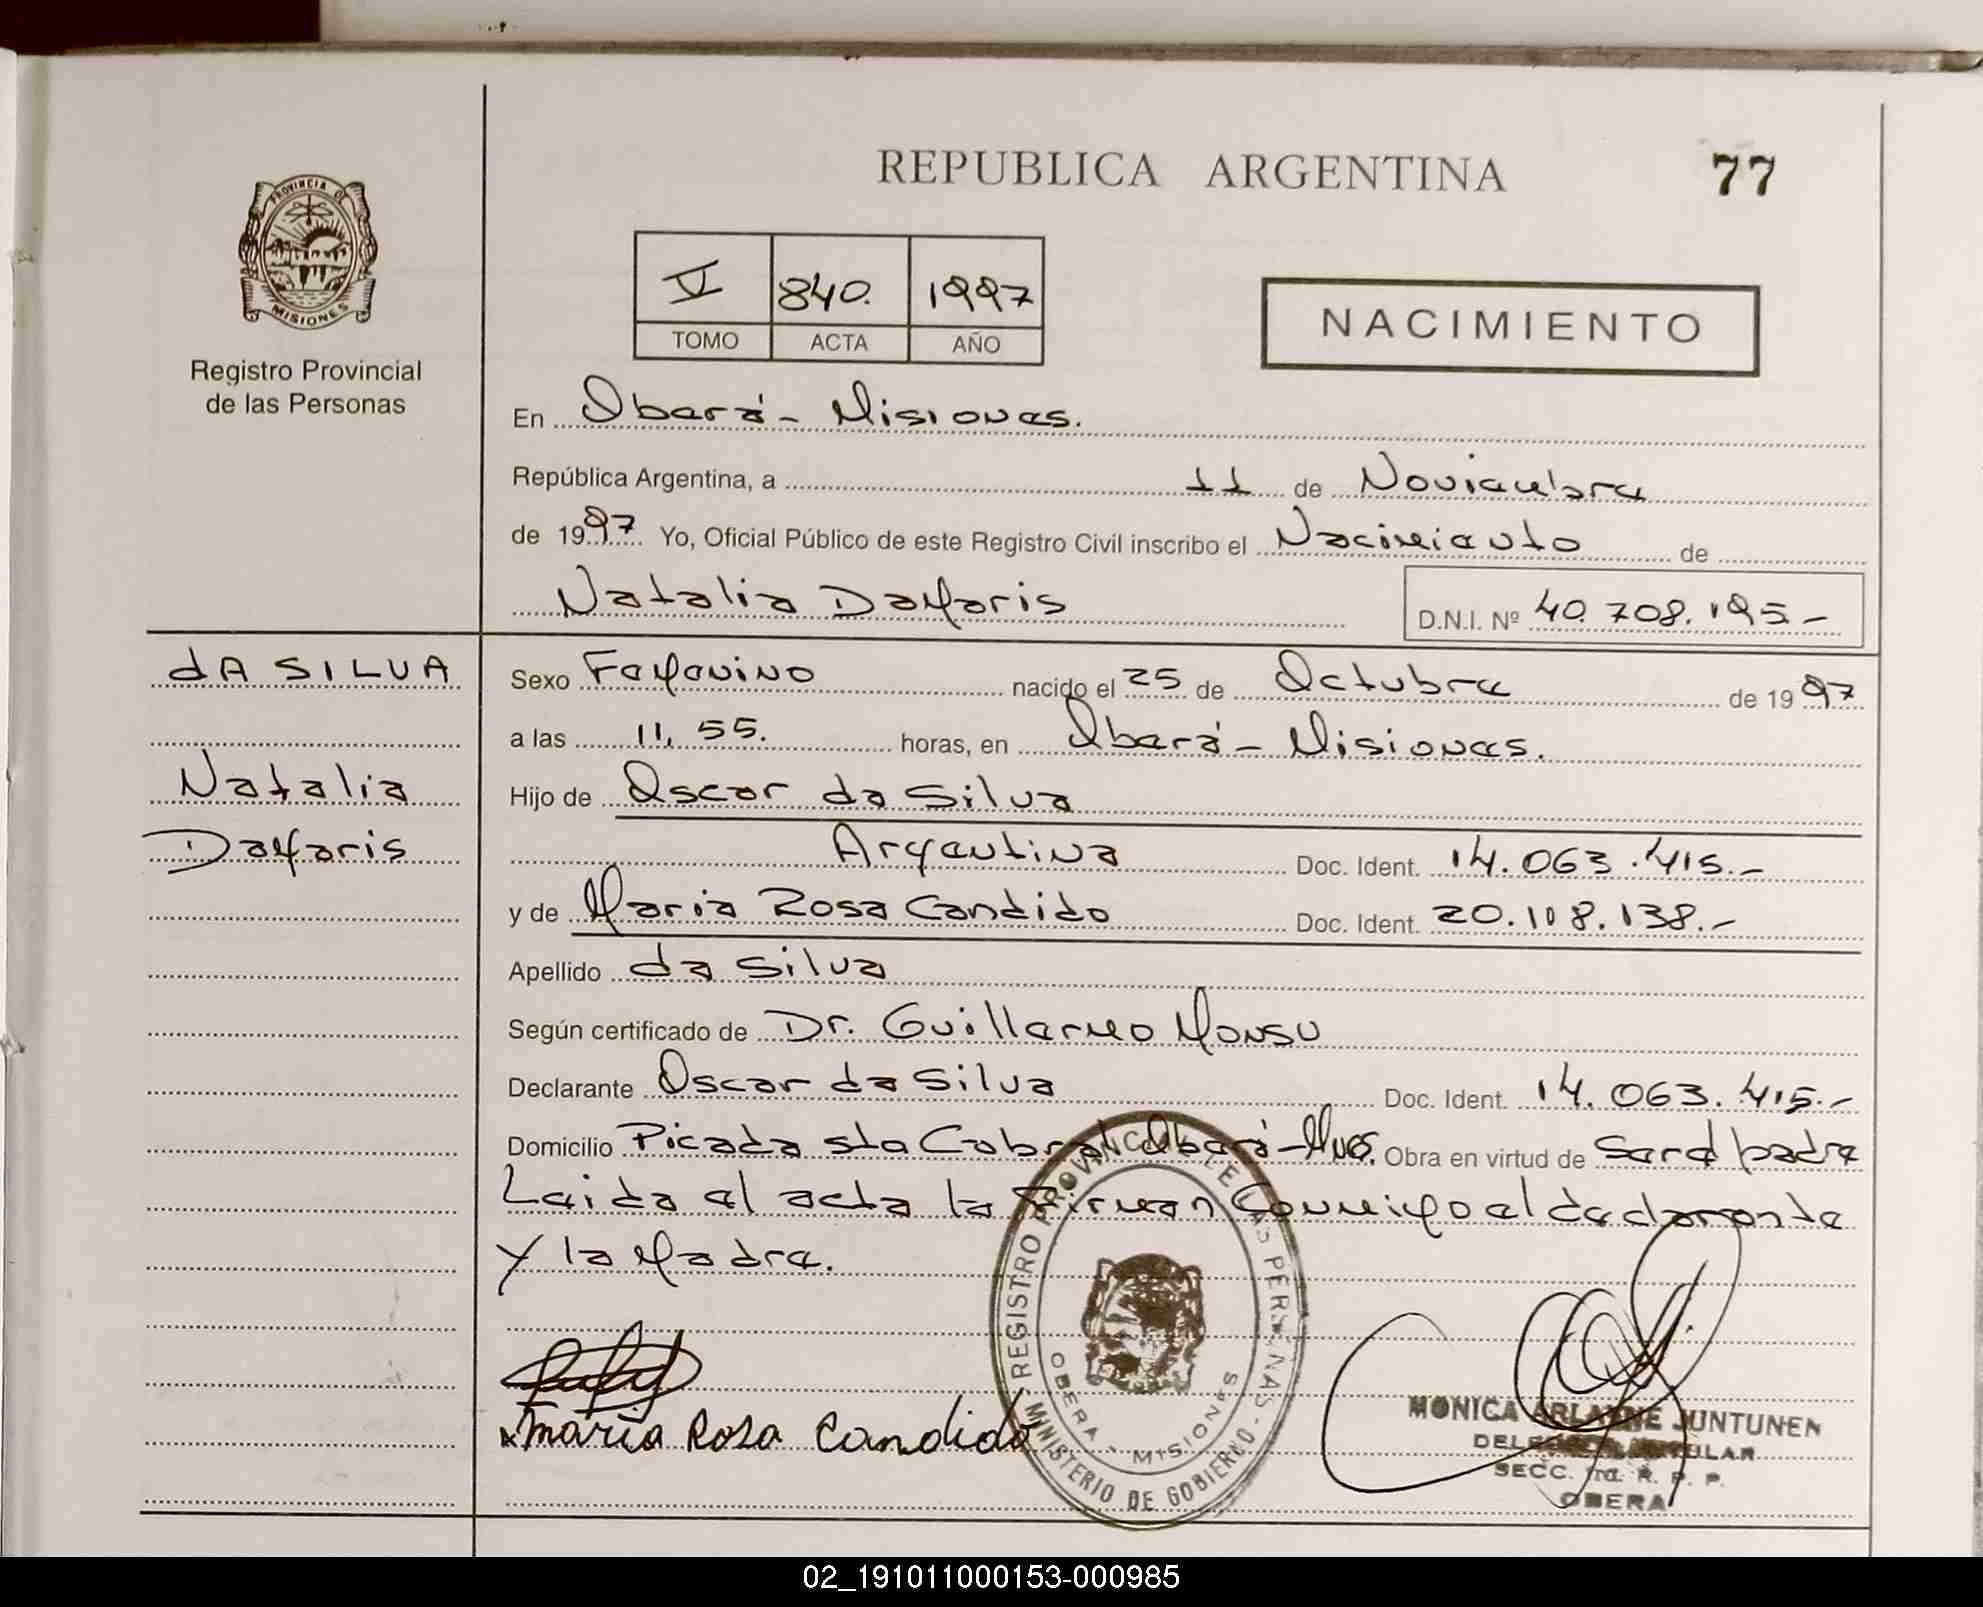 REPUBLICA ARGENTINA
77
PROVINCIA DE
MISIONES
Registro Provincial
de las Personas
V 840. 1997
TOMO ACTA AÑO
NACIMIENTO
En Oberá - Misiones.
República Argentina, a 11 de Noviembre
de 1997 Yo, Oficial Público de este Registro Civil inscribo el Nacimiento de
Natalia Damaris D.N.I. Nº 40.708.195.-
dA SILVA
Natalia
Damaris
Sexo Femenino nacido el 25 de Octubre de 1997
a las 11,55. horas, en Oberá - Misiones.
Hijo de Oscar da Silva
Argentina Doc. Ident. 14.063.415.-
y de Maria Rosa Candido Doc. Ident. 20.118.138.-
Apellido da Silva
Según certificado de Dr. Guillermo
Declarante Oscar da Silva Doc. Ident. 14.063.415.-
Domicilio Picada Sta Cabral Oberá - Mnes. Obra en virtud de Ser el padre
Leida el acta la Firman Conmigo el declarante
y la Madre.
Maria Rosa Candido
REGISTRO PROVINCIAL DE LAS PERSONAS - MINISTERIO DE GOBIERNO -
OBERA - MISIONES
MONICA JUNTUNEN
SECC. R. P. P.
OBERA
02_191011000153-000985